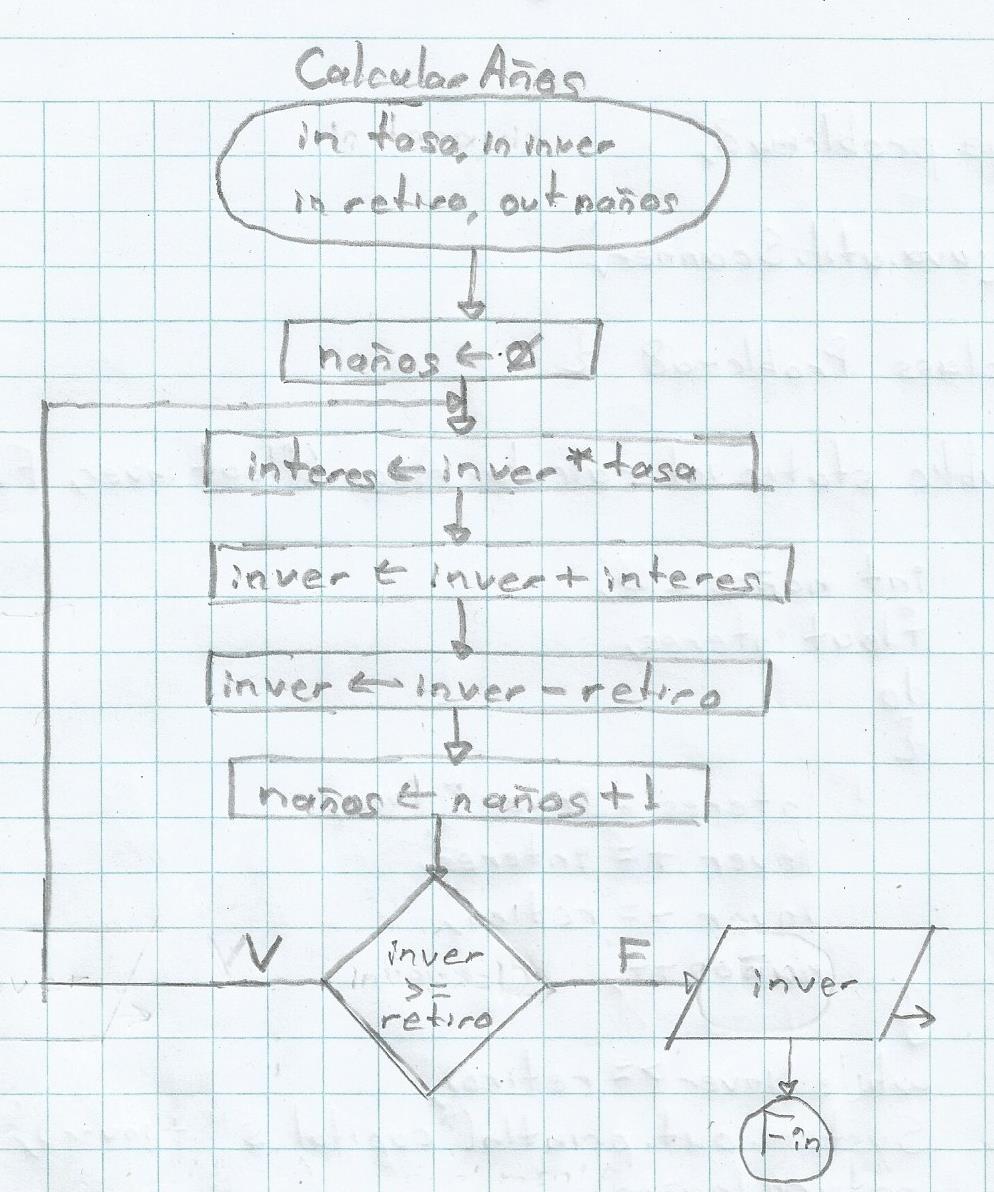 Calcular Años
in tasa, in inver
in retiro, out naños
naños ← 0
interes ← inver * tasa
inver ← inver + interes
inver ← inver - retiro
naños ← naños + 1
V
inver
>=
retiro
F
inver
Fin